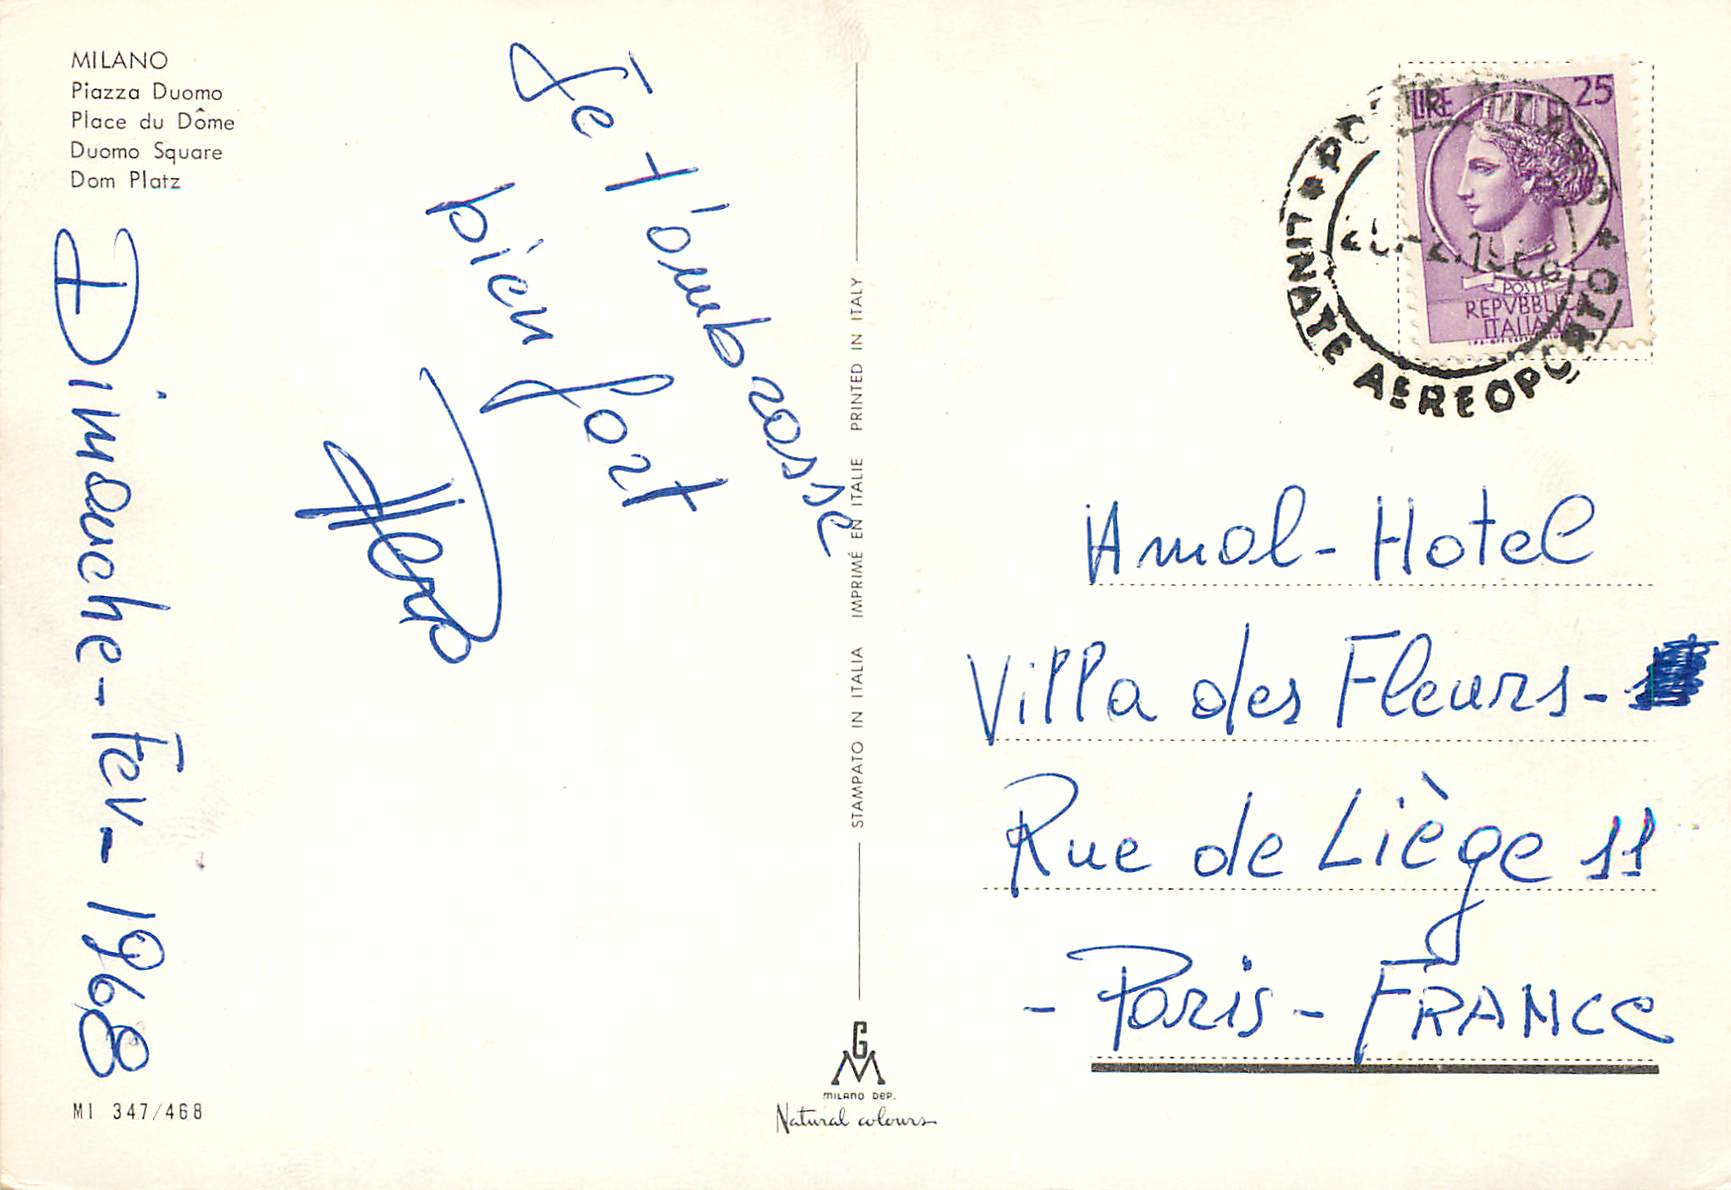 MILANO
Piazza Duomo
Place du Dôme
Duomo Square
Dom Platz
Je t'ombrosse
bien fort
Dimanche - Fev - 1968
MI 347/468
STAMPATO IN ITALIA IMPRIMÉ EN ITALIE PRINTED IN ITALY
GM
MILANO DEP.
Natural colours
LIRE 25
POSTE
REPVBBLICA
ITALIANA
LINATE AEREOPORTO
Amol-Hotel
Villa des Fleurs -
Rue de Liège 11
- Paris - FRANCE